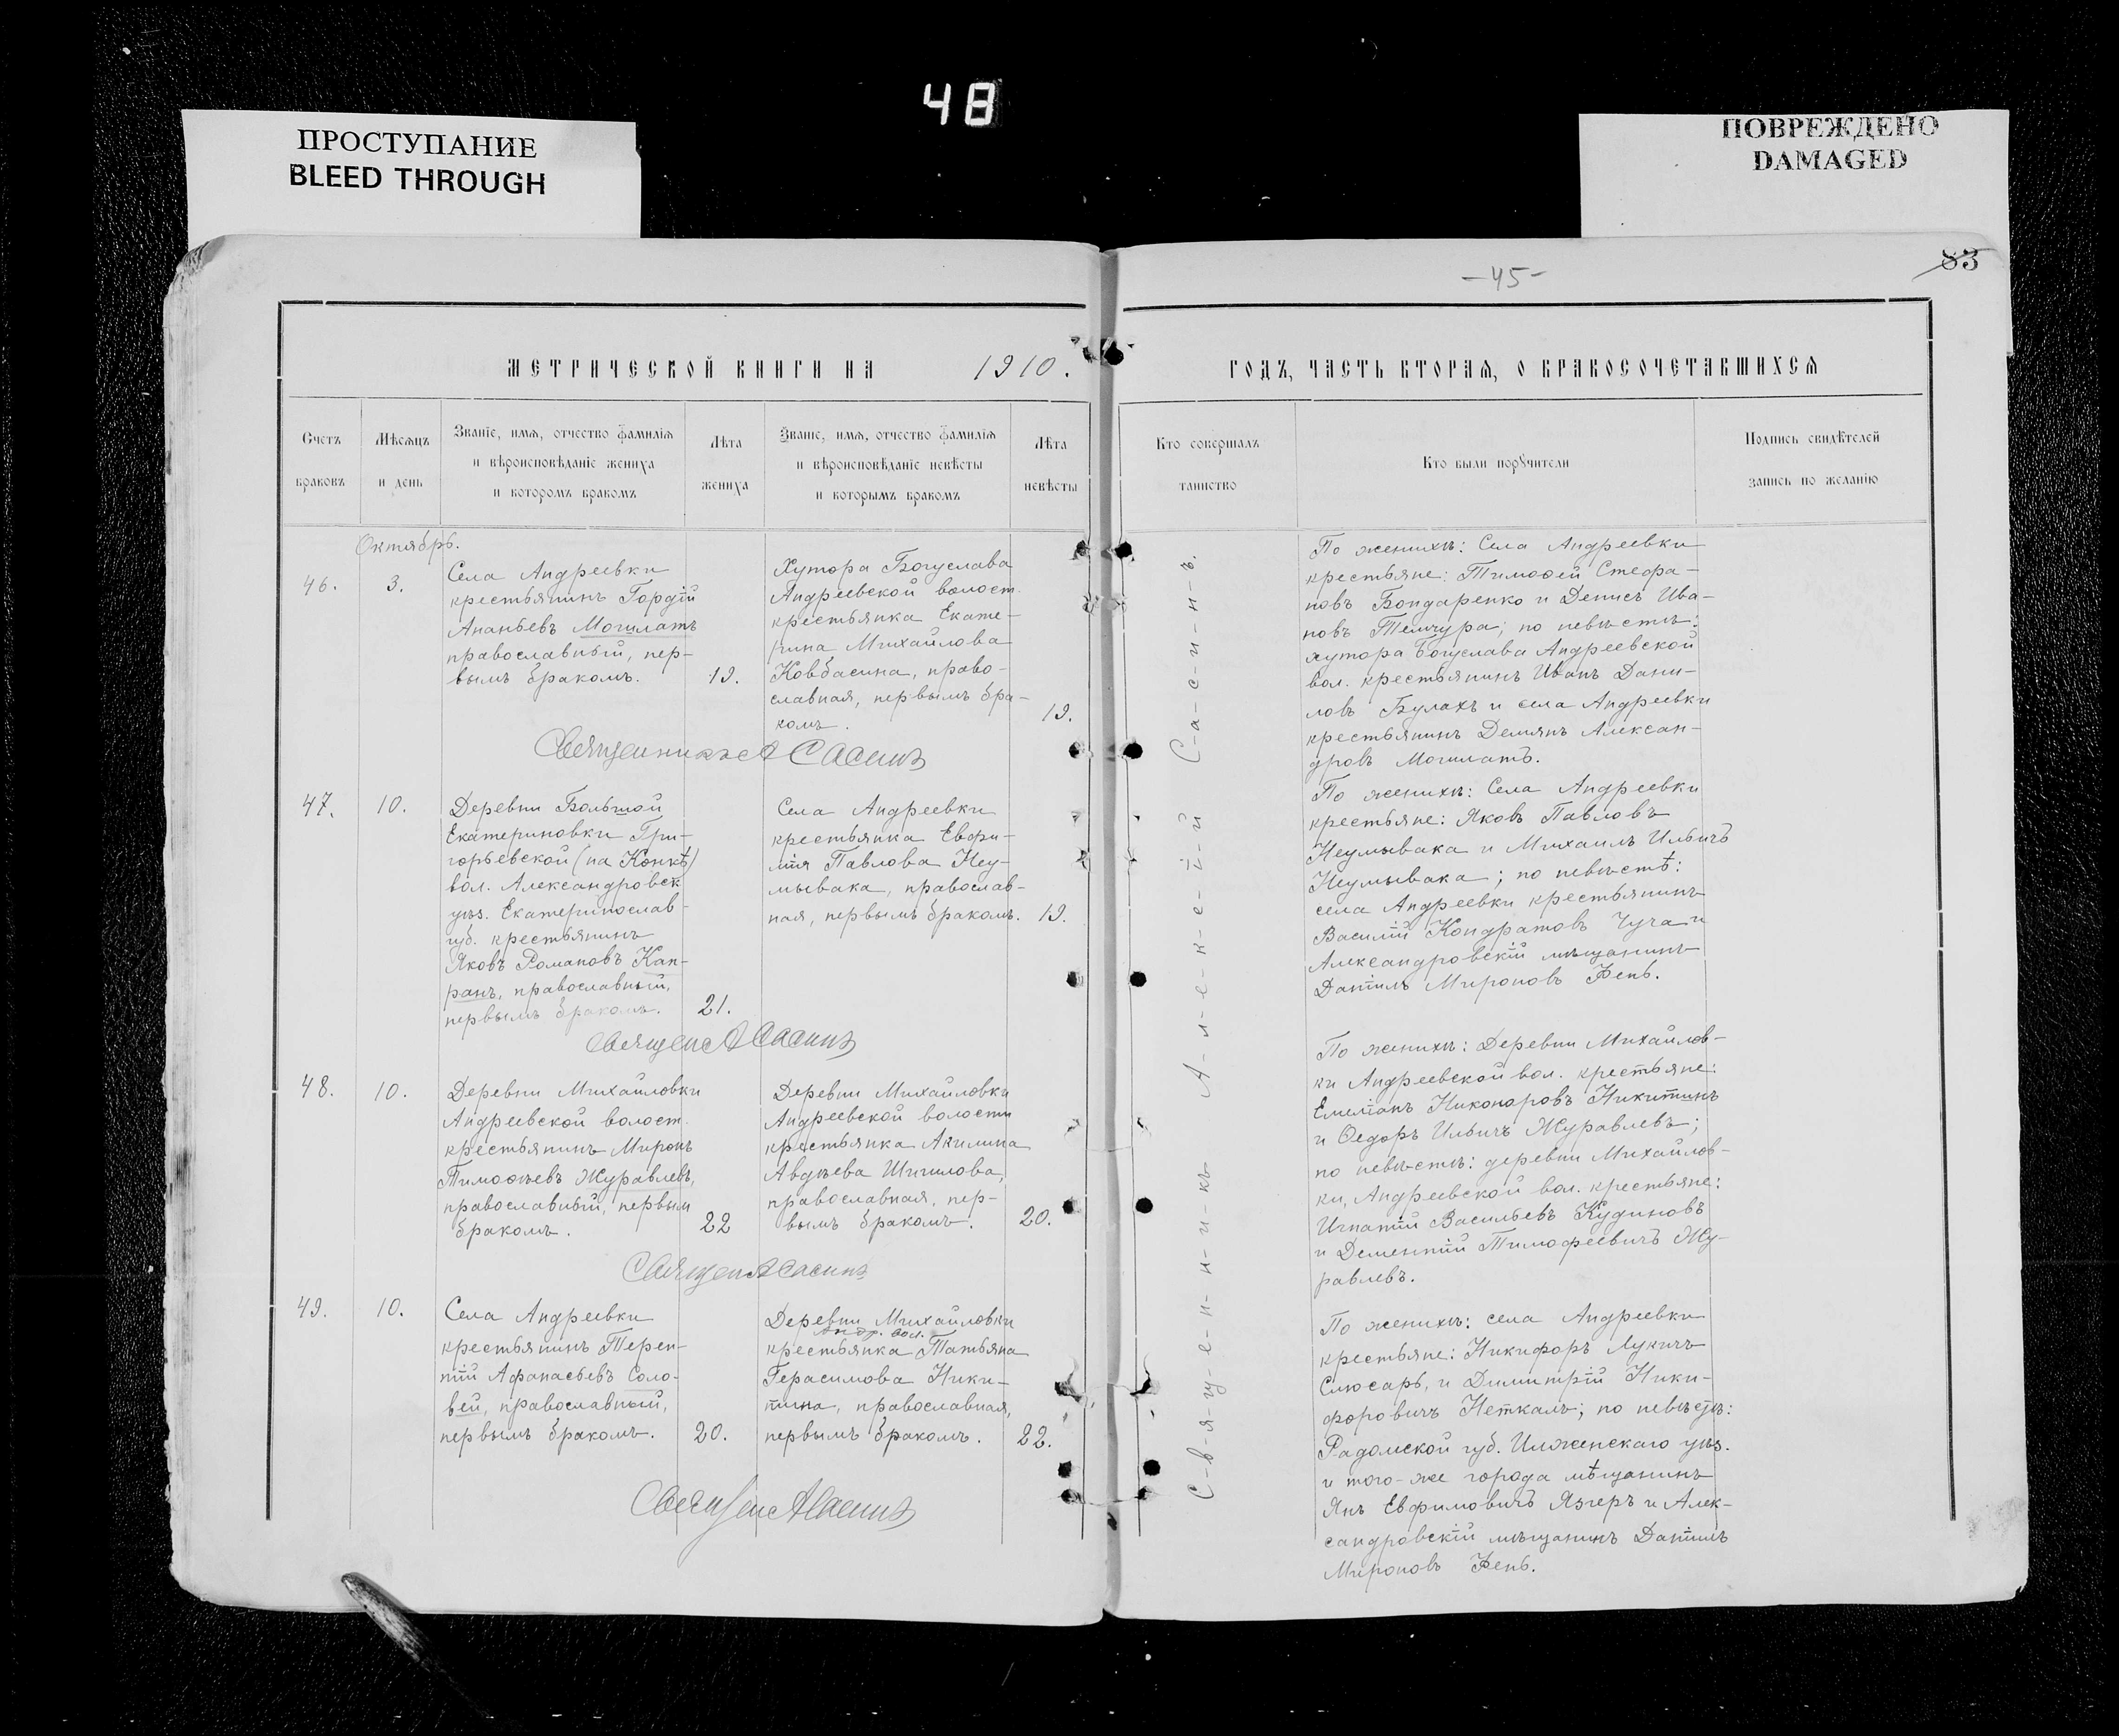 48
ПРОСТУПАНИЕ
BLEED THROUGH
ПОВРЕЖДЕНО
DAMAGED
-45-
83
МЕТРИЧЕСКОЙ КНИГИ НА 1910.
ГОДЪ, ЧАСТЬ ВТОРАЯ, О БРАКОСОЧЕТАВШИХСЯ
Счетъ
браковъ
Мѣсяцъ
и день
Званіе, имя, отчество фамилія
и вѣроисповѣданіе жениха
и которомъ бракомъ
Лѣта
жениха
Званіе, имя, отчество фамилія
и вѣроисповѣданіе невѣсты
и которымъ бракомъ
Лѣта
невѣсты
Кто совершалъ
таинство
Кто были поручители
Подпись свидѣтелей
запись по желанію
Октябрь.
46.
3.
Села Андреевки
крестьянинъ Гордій
Ананьевъ Могилатъ
православный, пер-
вымъ бракомъ.
19.
Хутора Богуслава
Андреевской волост.
крестьянка Екате-
рина Михайлова
Ковбасина, право-
славная, первымъ бра-
комъ.
19.
Священникъ А Сасинъ
По женихѣ: Села Андреевки
крестьяне: Тимоѳей Стефа-
новъ Бондаренко и Денисъ Ива-
новъ Темчура; по невѣстѣ:
хутора Богуслава Андреевской
вол. крестьянинъ Иванъ Дани-
ловъ Булахъ и села Андреевки
крестьянинъ Демянъ Алексан-
дровъ Могилатъ.
47.
10.
Деревни Большой
Екатериновки Гри-
горьевской (на Конкѣ)
вол. Александровск.
уѣз. Екатеринослав-
губ. крестьянинъ
Яковъ Романовъ Кап-
ранъ, православный,
первымъ бракомъ.
21.
Села Андреевки
крестьянка Евфи-
мія Павлова Неу-
мывака, православ-
ная, первымъ бракомъ.
19.
Священ А Сасинъ
По женихѣ: Села Андреевки
крестьяне: Яковъ Павловъ
Неумывака и Михаилъ Ильичъ
Неумывака; по невѣстѣ:
села Андреевки крестьянинъ
Василій Кондратовъ Чуча и
Александровскій мѣщанинъ
Даніилъ Мироновъ Фень.
48.
10.
Деревни Михайловки
Андреевской волост.
крестьянинъ Миронъ
Тимоѳѣевъ Журавлевъ,
православный, первым
бракомъ.
22
Деревни Михайловки
Андреевской волости
крестьянка Акилина
Авдѣева Шишлова,
православная, пер-
вымъ бракомъ.
20.
Священ А Сасинъ
По женихѣ: Деревни Михайлов-
ки Андреевской вол. крестьяне:
Емеліанъ Никоноровъ Никитинъ
и Ѳедоръ Ильичъ Журавлевъ;
по невѣстѣ: деревни Михайлов-
ки, Андреевской вол. крестьяне:
Игнатій Васильевъ Кудиновъ
и Дементій Тимофеевичъ Жу-
равлевъ.
49.
10.
Села Андреевки
крестьянинъ Терен-
тій Афанасьевъ Соло-
вей, православный,
первымъ бракомъ.
20.
Деревни Михайловки
Андр. вол.
крестьянка Татьяна
Герасимова Ники-
тина, православная,
первымъ бракомъ.
22.
Священ А Сасинъ
По женихѣ: села Андреевки
крестьяне: Никифоръ Лукичъ
Слюсарь, и Димитрій Ники-
форовичъ Неткалъ; по невѣстѣ:
Радомской губ. Илженскаго уѣз.
и того-же города мѣщанинъ
Янъ Евфимовичъ Язгеръ и Алек-
сандровскій мѣщанинъ Даніилъ
Мироновъ Фень.
С-в-я-щ-е-н-н-и-к-ъ А-л-е-к-с-ѣ-й С-а-с-и-н-ъ.